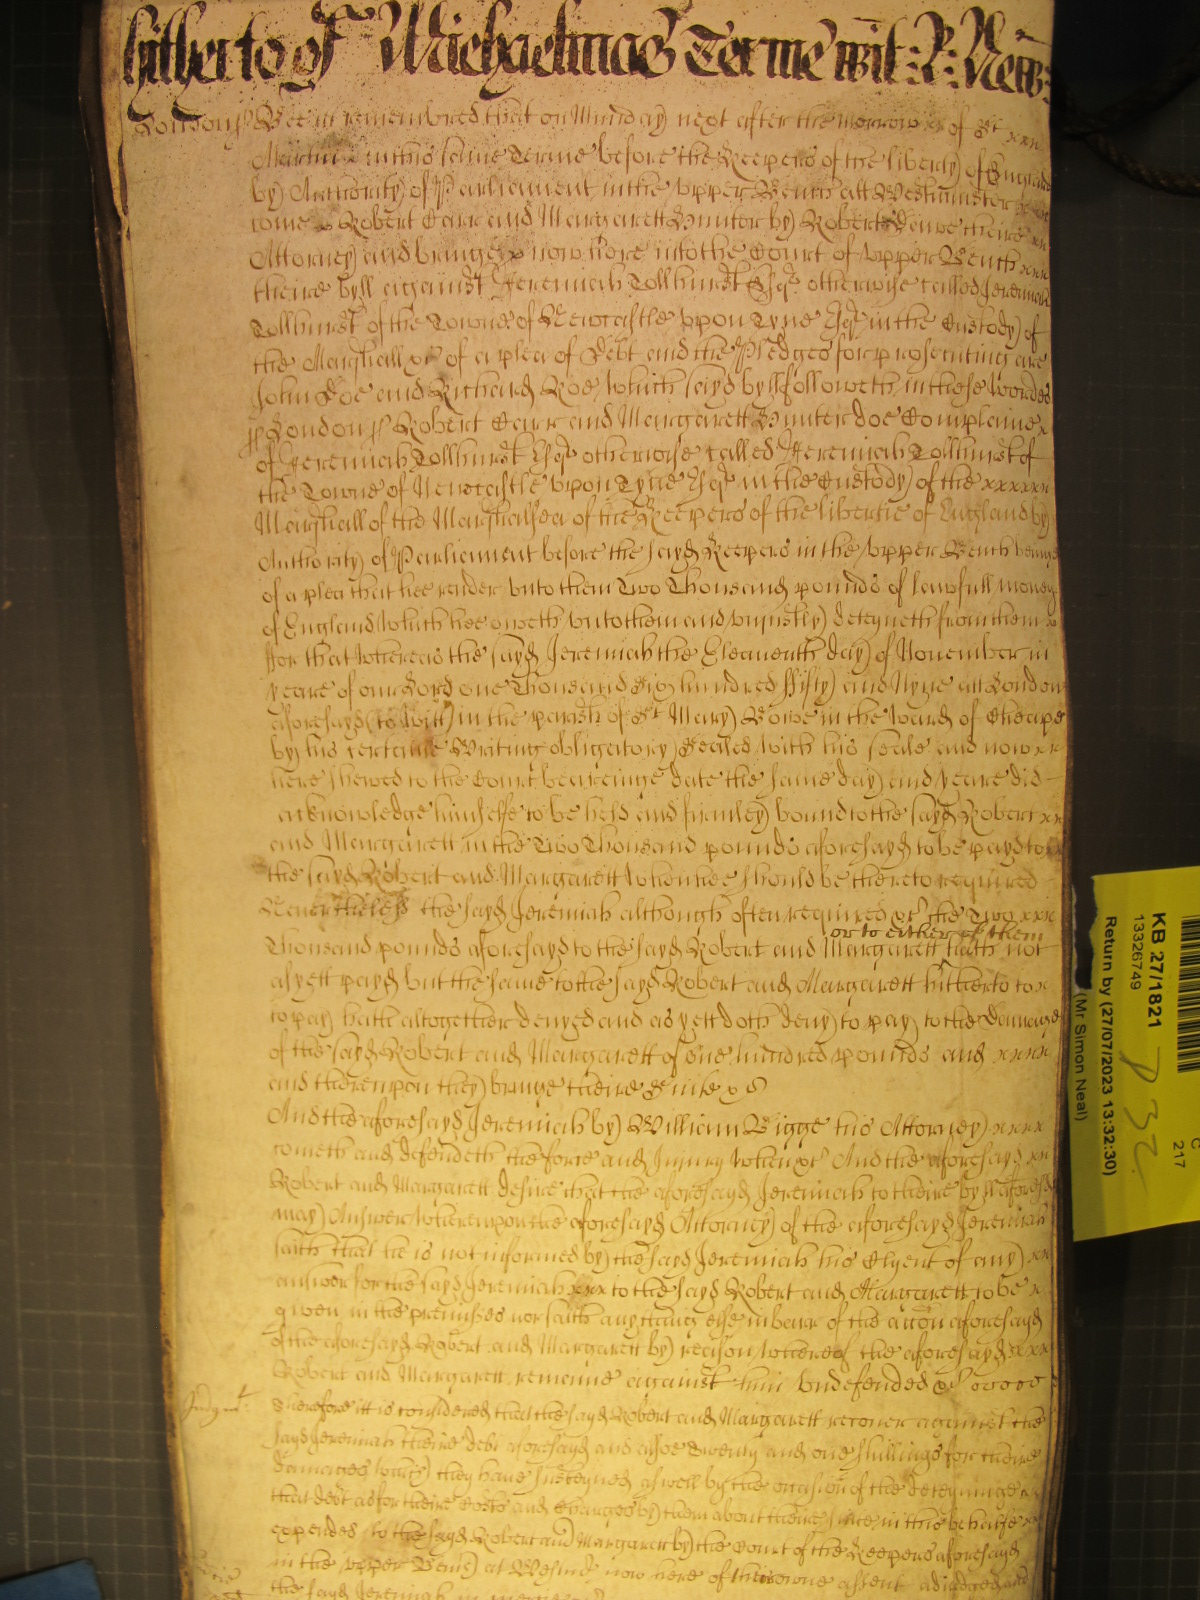 hitherto of Michaelmas Terme wit: R: New
London ss Bee it remembred that on Munday next after the morrow of St xxx
Martin in this same Terme before the Keepers of the liberty of England
by Authority of Parliament in the upper Bench att Westminster
come Robert Carr and Margarett Hunter by Robert theire xx
Attorney and bringe now here into the Court of upper Bench xxx
theire byll against Jeremiah Tollhurst Esqr otherwise called Jeremiah
Tollhurst of the Towne of Newcastle upon Tyne Esqr in the Custody of
the Marshall &c of a plea of Debt and the Pledges for prosecuting are
John Doe and Richard Roe which sayd byll followeth in these wordes
ss London ss Robert Carr and Margarett Hunter doe Complaine x
of Jeremiah Tollhurst Esqr otherwise called Jeremiah Tollhurst of
the Towne of Newcastle upon Tyne Esqr in the Custody of the xxxxxx
Marshall of the Marshalsea of the Keepers of the libertie of England by
Authority of Parliament before the sayd Keepers in the upper Bench beinge
of a plea that hee render unto them Two Thousand pounds of lawfull money
of England which hee oweth unto them and unjustly deteyneth from them x
ffor that whereas the sayd Jeremiah the Eleaventh day of November in
yeare of our Lord one Thousand Six hundred ffifty and Nyne att London
aforesayd (to witt) in the parish of St Mary Bowe in the ward of Cheape
by his certaine Writing obligatory Sealed with his seale and now xx
here shewed to the Court beareinge date the same day and yeare did
acknowledge himselfe to be held and firmley bound to the sayd Robert xx
and Margarett in the Two Thousand pounds aforesayd to be payd to
the sayd Robert and Margarett when hee should be thereto required
Neverthelesse the sayd Jeremiah although often required &c the Two xxx
or to either of them
Thousand pounds aforesayd to the sayd Robert and Margarett hath not
as yett payd but the same to the sayd Robert and Margarett hitherto to x
to pay hath altogether denyed and as yett doth deny to pay to the Dammage
of the sayd Robert and Margarett of one hundred pounds and xxxx
and thereupon they bringe theire Suite &c
And the aforesayd Jeremiah by William Bigge his Attorney xxxx
cometh and defendeth the force and Injury when &c And the aforesayd xx
Robert and Margarett desire that the aforesayd Jeremiah to theire byll aforesd
may Answer whereupon the aforesayd Attorney of the aforesayd Jeremiah
saith that he is not informed by the sayd Jeremiah his Clyent of any xx
answer for the sayd Jeremiah xxx to the sayd Robert and Margarett to be x
given in the premisses nor saith anything else in barr of the accon aforesayd
of the aforesayd Robert and Margarett by reason whereof the aforesayd xxx
Robert and Margarett remaine against him undefended &c
Judgmt: Therefore itt is considered that the sayd Robert and Margarett recover against the
sayd Jeremiah theire debt aforesayd and alsoe Twenty and one shillings for theire
damages which they have susteyned as well by the occasion of the deteyninge
that debt as for theire Costs and Charges by them about theire suite in this behalfe xx
expended to the sayd Robert and Margarett by the Court of the Keepers aforesayd
in the upper Bench at Westmr now here of theire owne assent adjudged and
the sayd Jeremiah in mercie
KB 27/1821
13326749
Return by (27/07/2023 13:32:30)
(Mr Simon Neal)
217